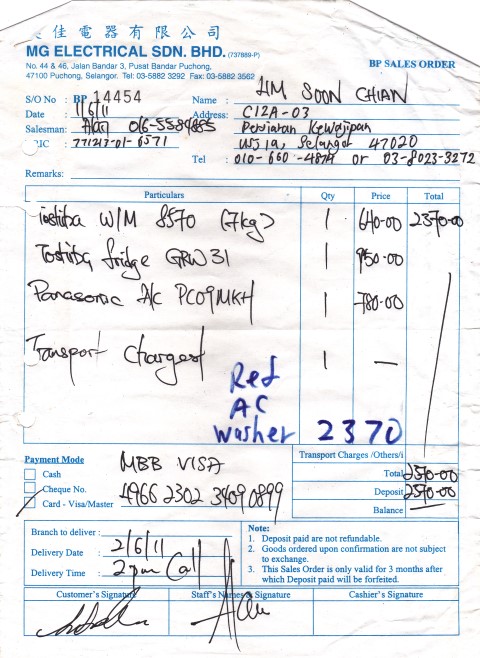 佳電器有限公司
MG ELECTRICAL SDN. BHD. (737889-P)
No. 44 & 46, Jalan Bandar 3, Pusat Bandar Puchong,
47100 Puchong, Selangor. Tel: 03-5882 3292 Fax: 03-5882 3562
BP SALES ORDER
S/O No : BP 14454
Name : LIM SOON CHIAN
Date : 1/6/11
Address: C12A-03
Salesman: Alan 016-5589885
Persiaran Kewajipan
IC : 771213-01-6571
USJ 19, Selangor 47020
Tel : 010-660-4874 or 03-8023-3272
Remarks:
Particulars Qty Price Total
Toshiba W/M 8570 (7kg) 1 640-00 2370-00
Toshiba fridge GRW31 1 950-00
Panasonic A/C PC09MKH 1 780-00
Transport Charges 1 —
Ref
AC
Washer 2370
Payment Mode
Transport Charges /Others/i
Cash MBB VISA
Total 2370-00
Cheque No.
Deposit 2370-00
Card - Visa/Master 4966 2302 3409 0899
Balance
Branch to deliver :
Delivery Date : 2/6/11
Delivery Time : 2pm Call
Note:
1. Deposit paid are not refundable.
2. Goods ordered upon confirmation are not subject
to exchange.
3. This Sales Order is only valid for 3 months after
which Deposit paid will be forfeited.
Customer's Signature Staff's Names & Signature Cashier's Signature